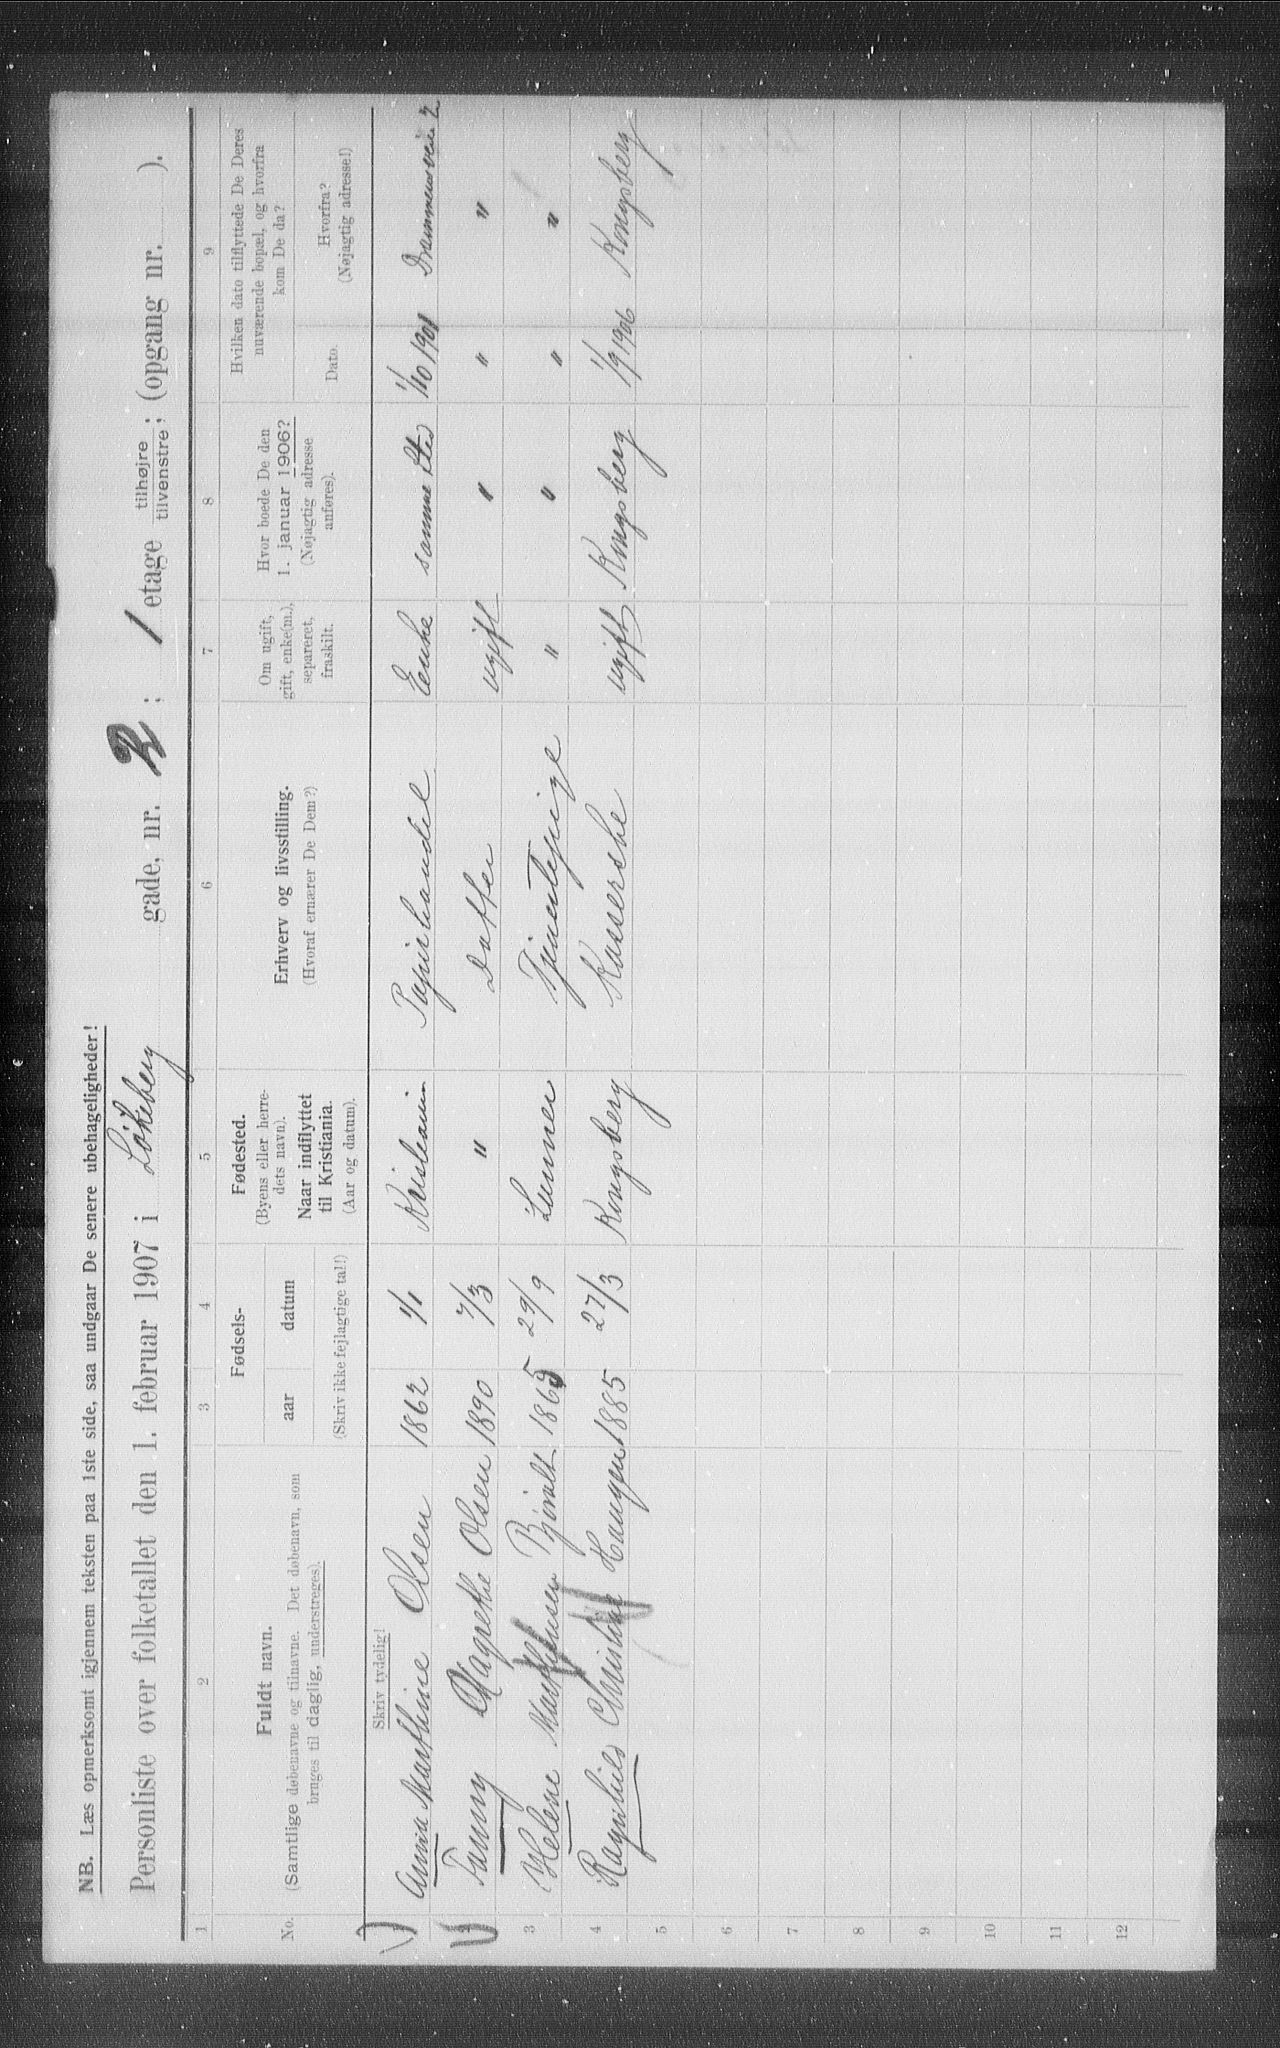 NB. Læs opmerksomt igjennem teksten paa 1ste side, saa undgaar De senere ubehageligheder!
Personliste over folketallet den 1. februar 1907 i Løkeberg gade, nr. 2; 1 etage tilhøjre tilvenstre; (opgang nr. ).
1 2 3 4 5 6 7 8 9
No.
Fuldt navn.
(Samtlige døbenavne og tilnavne. Det døbenavn, som
bruges til daglig, understreges).
Fødsels-
aar datum
(Skriv ikke fejlagtige tal!)
Fødested.
(Byens eller herre-
dets navn).
Naar indflyttet
til Kristiania.
(Aar og datum).
Erhverv og livsstilling.
(Hvoraf ernærer De Dem?)
Om ugift,
gift, enke(m.),
separeret,
fraskilt.
Hvor boede De den
1. januar 1906?
(Nøjagtig adresse
anføres).
Hvilken dato tilflyttede De Deres
nuværende bopæl, og hvorfra
kom De da?
Dato.
Hvorfra?
(Nøjagtig adresse!)
Skriv tydelig!
1 Anna Marthine Olsen 1862 1/1 Kristiania Papirhandel Enke samme sted 1/10 1901 Drammensveien 2
2 Fanny Magrethe Olsen 1890 7/3 " Datter ugift " " "
3 Helene Mathisen 1865 29/9 Lunner Tjenestepige " " " "
4 Ragnhild Christine Haugen 1885 27/3 Kongsberg Kasserske ugift Kongsberg 1/9 1906 Kongsberg
5
6
7
8
9
10
11
12